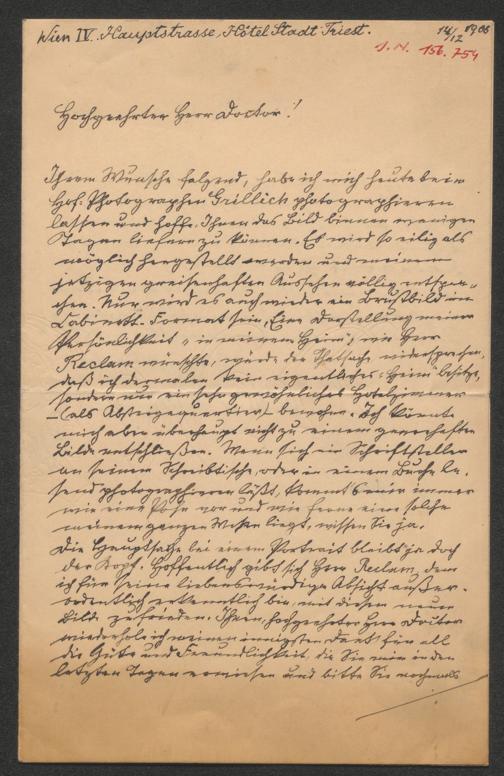 Wien IV. Hauptstrasse, Hôtel Stadt Triest.
14/12 1906
J. N. 156.754
Hochgeehrter Herr Doctor!
Ihrem Wunsche folgend, habe ich mich heute beim
Hof-Photographen Grillich photographieren
lassen und hoffe Ihnen das Bild binnen wenigen
Tagen liefern zu können. Es wird so eilig als
möglich hergestellt werden und meinem
jetzigen greisenhaften Aussehen völlig entspre-
chen. Nur wird es auch wieder ein Brustbild im
Cabinett-Format sein. Eine Darstellung meiner
Persönlichkeit „in meinem Heim“, wie Herr
Reclam wünschte, würde der Thatsache widersprechen,
daß ich dermalen kein eigentliches Heim besitze,
sondern nur ein sehr gewöhnliches Hotelzimmer
– (als Absteigequartier) – bewohne. Ich könnte
mich aber überhaupt nicht zu einem genrehaften
Bilde entschließen. Wenn sich ein Schriftsteller
an seinem Schreibtische, oder in einem Buche le-
send photographieren läßt, kommt es mir immer
wie eine Pose vor und wie ferne eine solche
meinem ganzen Wesen liegt, wissen Sie ja.
Die Hauptsache bei einem Portrait bleibt ja doch
der Kopf. Hoffentlich gibt sich Herr Reclam, dem
ich für seine liebenswürdige Absicht außer-
ordentlich erkenntlich bin, mit diesem neuen
Bild zufrieden. Ihnen, hochgeehrter Herr Doctor
wiederhole ich meinen innigsten Dank für all
die Güte und Freundlichkeit, die Sie mir in den
letzten Tagen erwiesen und bitte Sie nochmals